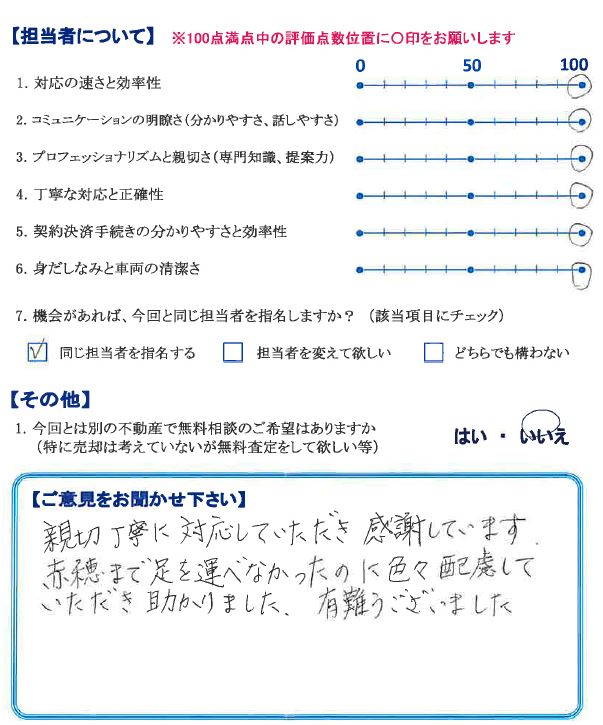 【担当者について】 ※100点満点中の評価点数位置に〇印をお願いします
0 50 100
1. 対応の速さと効率性
2. コミュニケーションの明瞭さ（分かりやすさ、話しやすさ）
3. プロフェッショナリズムと親切さ（専門知識、提案力）
4. 丁寧な対応と正確性
5. 契約決済手続きの分かりやすさと効率性
6. 身だしなみと車両の清潔さ
7. 機会があれば、今回と同じ担当者を指名しますか？ （該当項目にチェック）
同じ担当者を指名する 担当者を変えて欲しい どちらでも構わない
【その他】
1. 今回とは別の不動産で無料相談のご希望はありますか
（特に売却は考えていないが無料査定をして欲しい等）
はい ・ いいえ
【ご意見をお聞かせ下さい】
親切丁寧に対応していただき 感謝しています.
赤穂まで足を運べなかったのに色々配慮して
いただき助かりました. 有難うございました